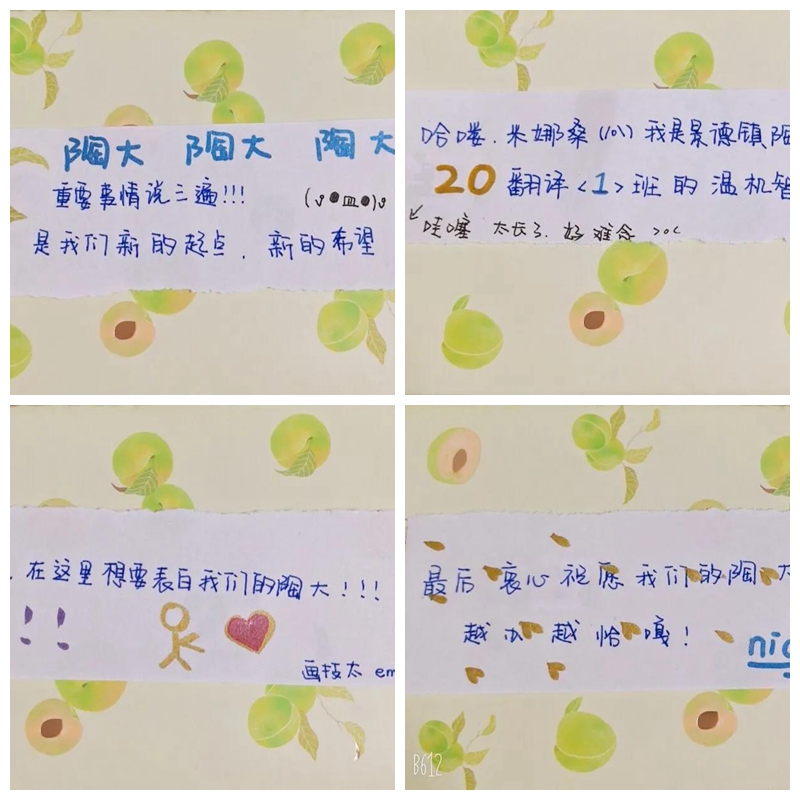 陶大 陶大 陶大
重要事情说三遍!!!
是我们新的起点.新的希望
哈喽.米娜桑 我是景德镇陶
20翻译<1>班的温机智
哇噻 太长了.好难念
.在这里想要表白我们的陶大!!!
!!
画技太 em
最后衷心祝愿我们的陶大
越办越恰嘎!
nic
B612